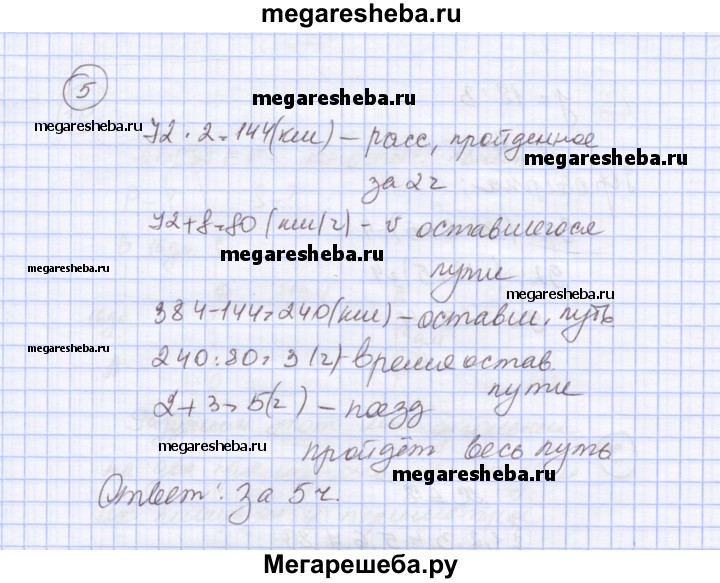 megaresheba.ru
5
megaresheba.ru
megaresheba.ru
72 · 2 = 144(км) – расс, пройденное
megaresheba.ru
за 2ч
72+8=80 (км/ч) – v оставшегося
megaresheba.ru
megaresheba.ru
пути
megaresheba.ru
384-144=240(км) – оставш. путь
megaresheba.ru
240:80= 3 (ч)-время остав.
пути
2+3=5(ч) – поезд
megaresheba.ru
пройдёт весь путь
megaresheba.ru
Ответ: за 5ч.
Мегарешеба.ру